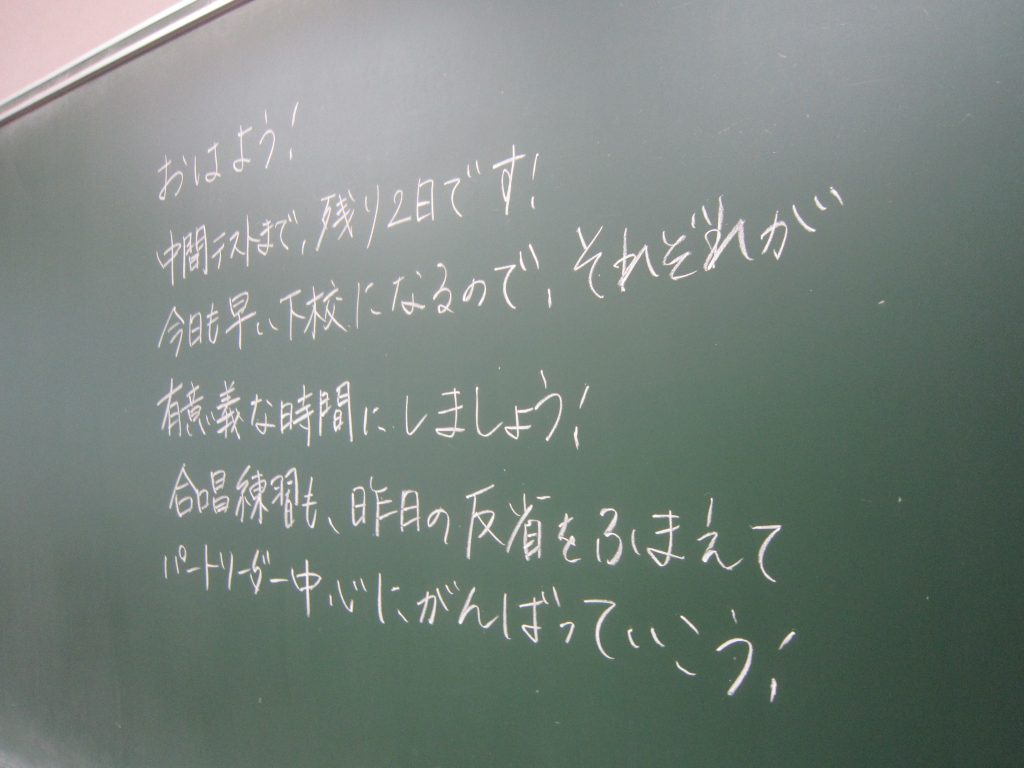 おはよう!
中間テストまで、残り2日です!
今日も早い下校になるので、それぞれが
有意義な時間にしましょう!
合唱練習も、昨日の反省をふまえて
パートリーダー中心にがんばっていこう!